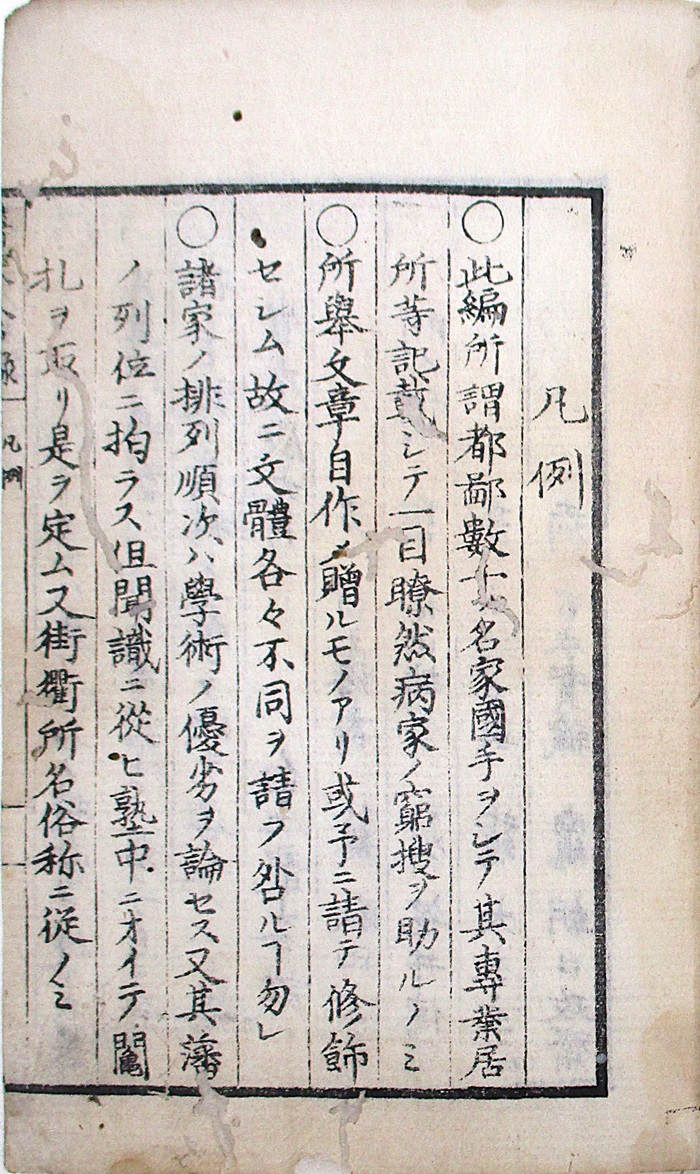 凡例
○此編所謂都鄙數十名家國手ヲシテ其專業居
所等記載シテ一目瞭然病家ノ窮搜ヲ助ルノミ
○所舉文章自作メ贈ルモノアリ或予ニ請テ修飾
セシム故ニ文體各々不同ヲ請フ咎ルヿ勿レ
○諸家ノ排列順次ハ學術ノ優劣ヲ論セス又其藩
ノ列位ニ拍ラス但聞識ニ從ヒ塾中ニオイテ鬮
札ヲ取リ是ヲ定ム又街衢所名俗称ニ従ノミ
凡例